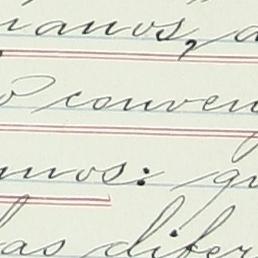 ianos, a
o conven
mos: qu
las difer